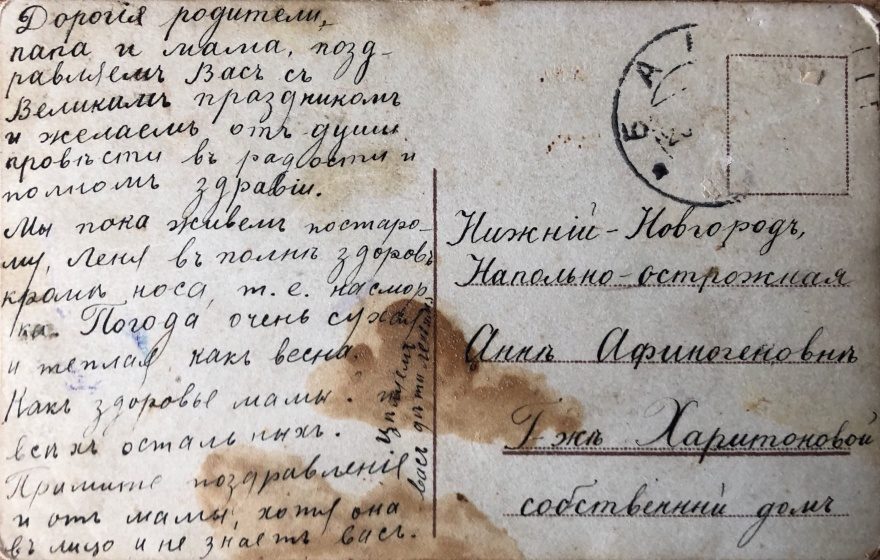 Дорогія родители,
папа и мама, позд-
равляемъ Васъ съ
Великимъ праздникомъ
и желаемъ отъ души
провѣсти въ радости и
полномъ здравіи.
Мы пока живемъ постаро-
му, Леня въ полнѣ здоровъ
кромѣ носа, т.е. насмор-
ка. Погода очень сухая
и теплая какъ весна.
Какъ здоровье мамы. и
всѣхъ остальныхъ.
Примите поздравленія
и отъ мамы, хотя она
въ лицо и не знаетъ васъ.
Цѣлуемъ
васъ дѣти
БА
Нижній-Новгородъ,
Напольно-острожная
Аннѣ Афиногеновнѣ
Г-жѣ Харитоновой
собственний домъ